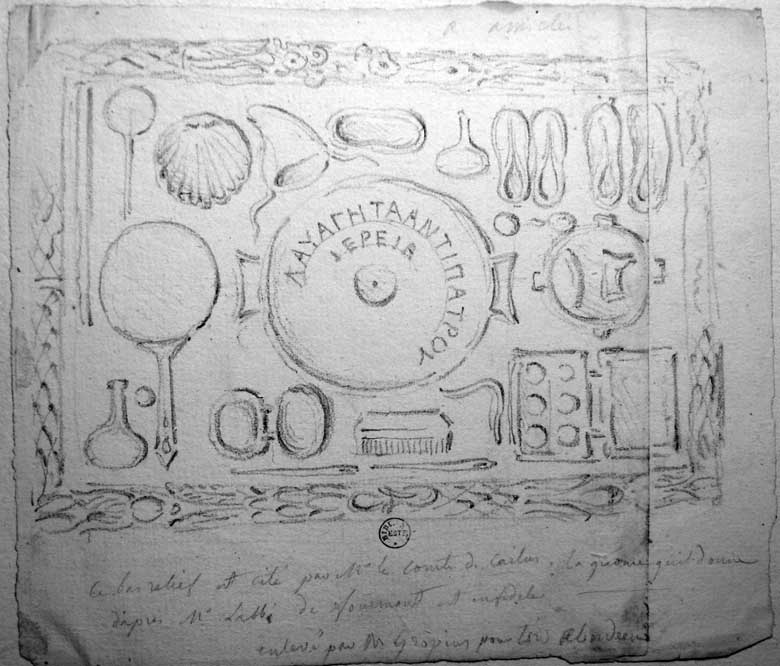 a
ΛΑΥΑΓΗΤΑΑΝΤΙΠΑΤΡΟΥ
ΙΕΡΕΙΑ
ce bas relief est cité par Mr le comte de Cailus, la gravure qu'il donne
d'après Mr Labbé de fourmont est infidele
enlevé par M Gropius pour lord Aberdeen